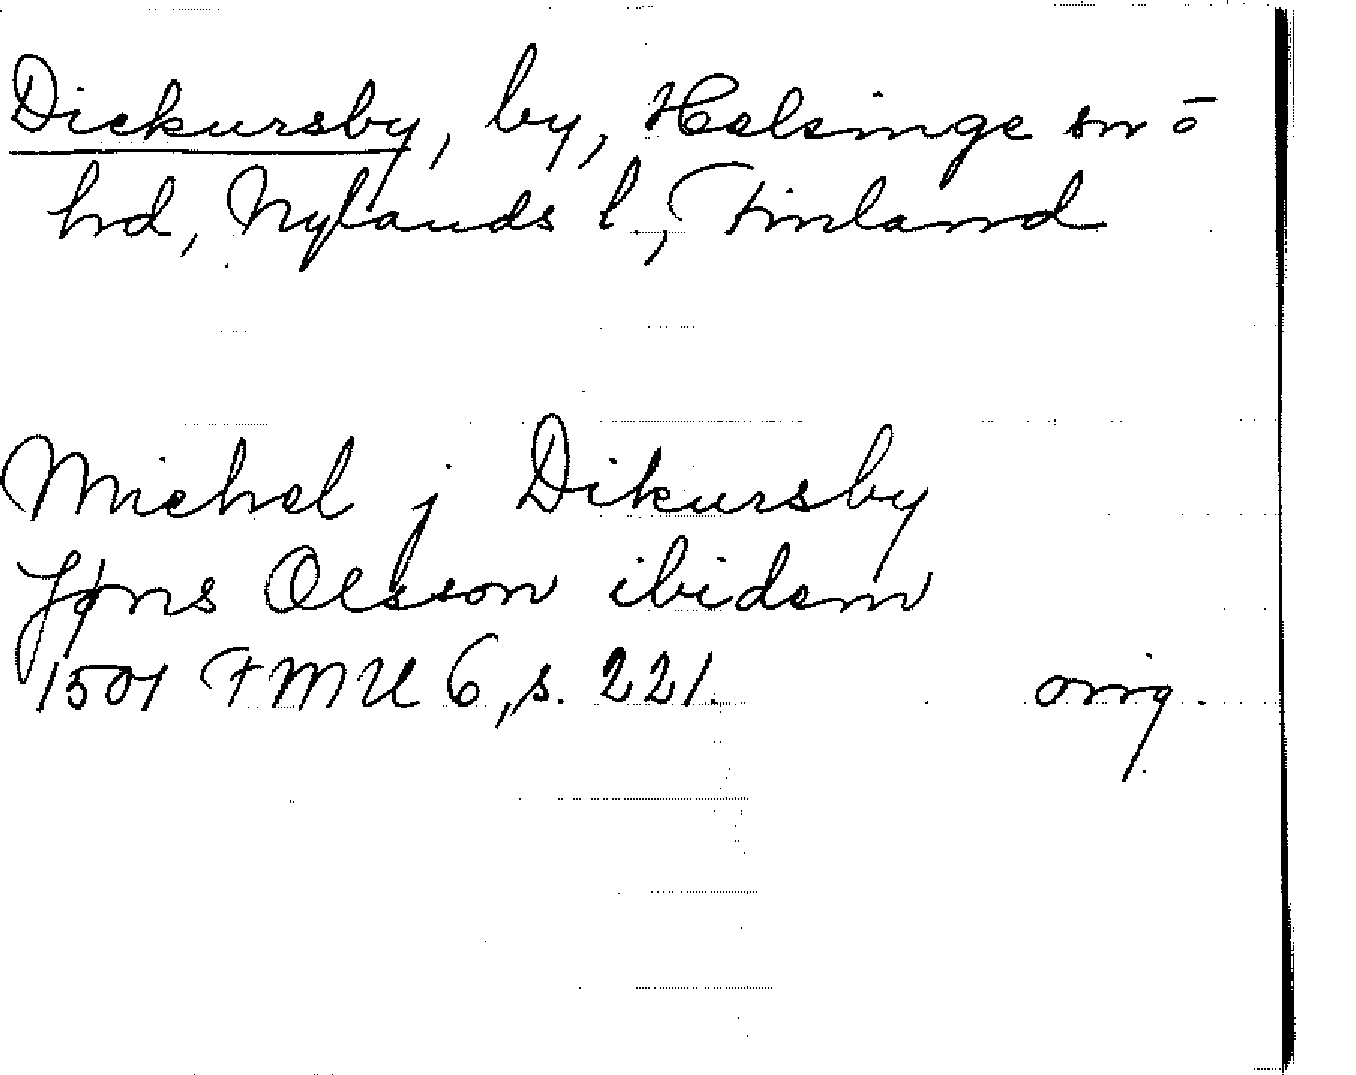 Dickursby, by, Helsinge sn o
hd, Nylands l, Finland
Michel j Dikursby
Jöns Olsson ibidem
1501 FMU 6, s. 221.
orig.